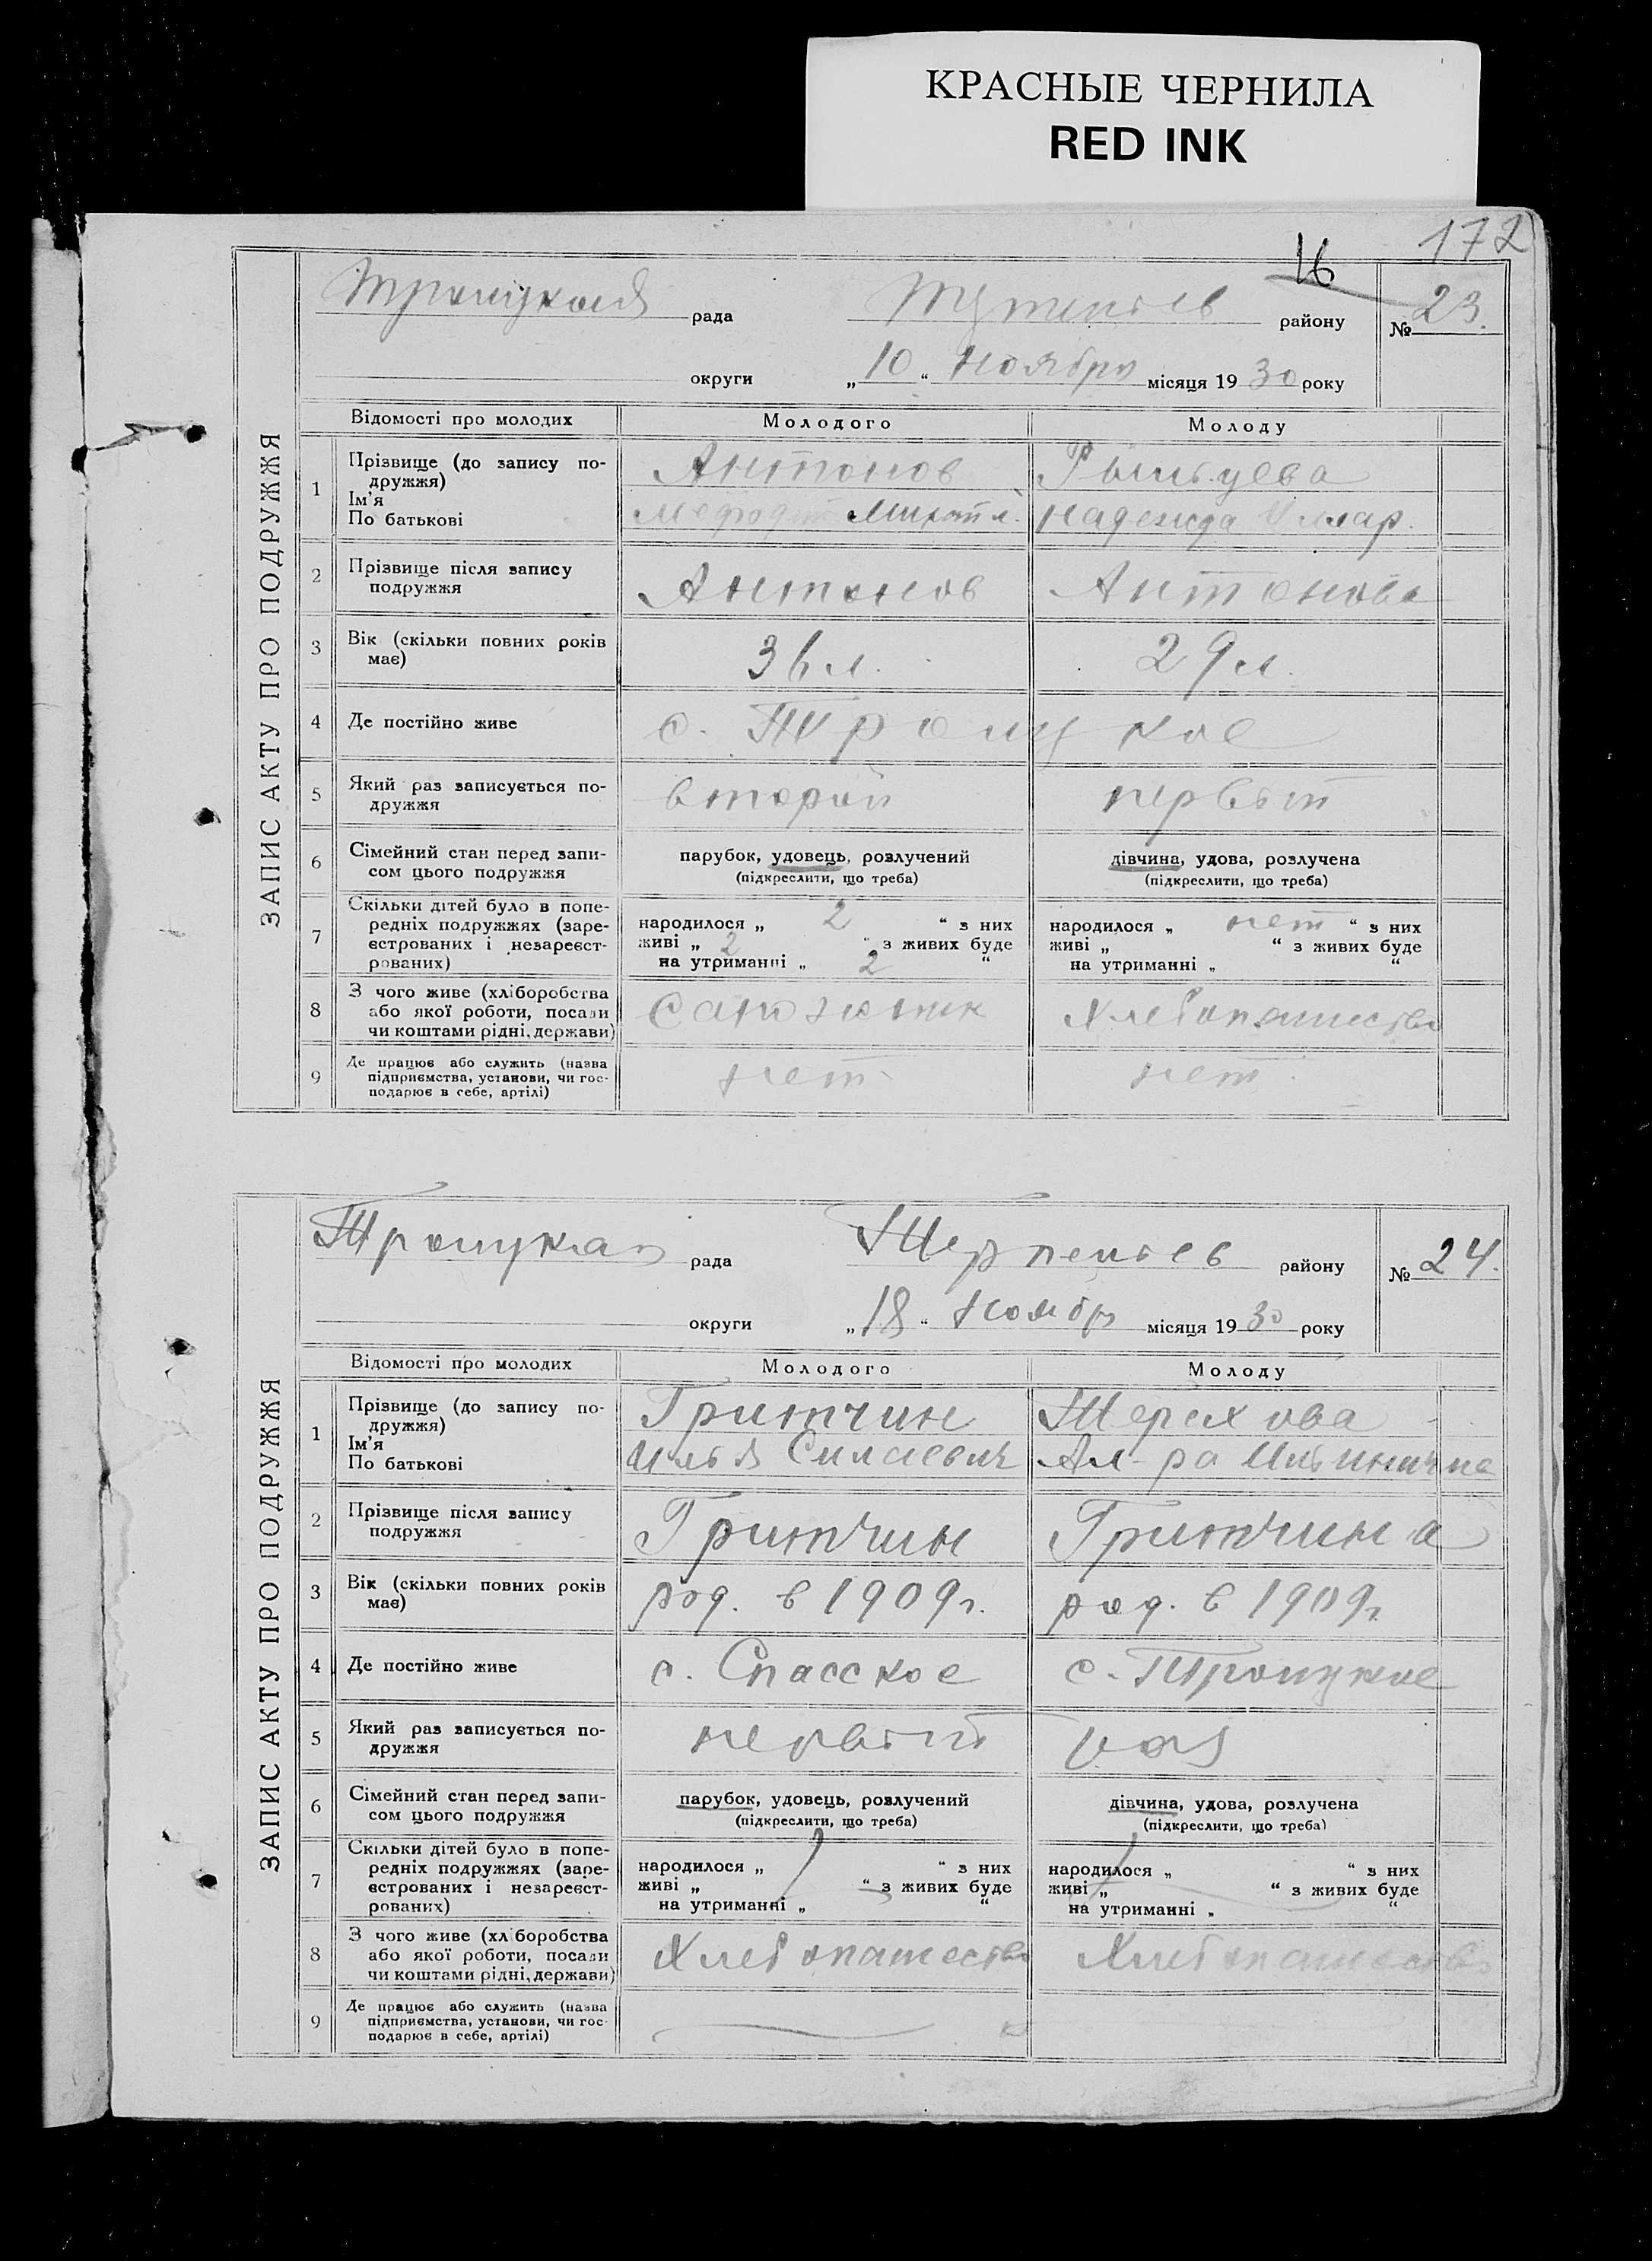 КРАСНЫЕ ЧЕРНИЛА
RED INK
172
16
Троицкая рада района району № 23.
округи „10“ Ноября місяця 1930 року
ЗАПИС АКТУ ПРО ПОДРУЖЖЯ
Відомості про молодих Молодого Молоду
1 Прізвище (до запису по-
дружжя)
Ім’я
По батькові
Антонов
Мефодий Михайл. Надежда Иллар.
2 Прізвище після запису
подружжя
Антонов Антонова
3 Вік (скільки повних років
має)
36 л. 29 л.
4 Де постійно живе с. Троицкое
5 Який раз записується по-
дружжя
второй первый
6 Сімейний стан перед запи-
сом цього подружжя
парубок, удовець, розлучений дівчина, удова, розлучена
(підкреслити, що треба) (підкреслити, що треба)
7 Скільки дітей було в попе-
редніх подружжях (заре-
єстрованих і незареєст-
рованих)
народилося „ 2 “ з них народилося „ нет “ з них
живі „ 2 “ з живих буде живі „ “ з живих буде
на утриманні „ 2 “ на утриманні „ “
8 З чого живе (хліборобства
або якої роботи, посади
чи коштами рідні, держави)
Сапожник Хлебопашество
9 Де працює або служить (назва
підприємства, установи, чи гос-
подарює в себе, артілі)
нет нет.
Троицкая рада Терпеньев району № 24.
округи „18“ Ноябр місяця 1930 року
ЗАПИС АКТУ ПРО ПОДРУЖЖЯ
Відомості про молодих Молодого Молоду
1 Прізвище (до запису по-
дружжя)
Ім’я
По батькові
Гритчин Терехова
Илья Силаевич Ал-ра Ильинична
2 Прізвище після запису
подружжя
Гритчин Гритчина
3 Вік (скільки повних років
має)
род. в 1909 г. род. в 1909 г.
4 Де постійно живе с. Спасское с. Троицкое
5 Який раз записується по-
дружжя
первый раз
6 Сімейний стан перед запи-
сом цього подружжя
парубок, удовець, розлучений дівчина, удова, розлучена
(підкреслити, що треба) (підкреслити, що треба)
7 Скільки дітей було в попе-
редніх подружжях (заре-
єстрованих і незареєст-
рованих)
народилося „ “ з них народилося „ “ з них
живі „ “ з живих буде живі „ “ з живих буде
на утриманні „ “ на утриманні „ “
8 З чого живе (хліборобства
або якої роботи, посади
чи коштами рідні, держави)
Хлебопашество Хлебопашество
9 Де працює або служить (назва
підприємства, установи, чи гос-
подарює в себе, артілі)